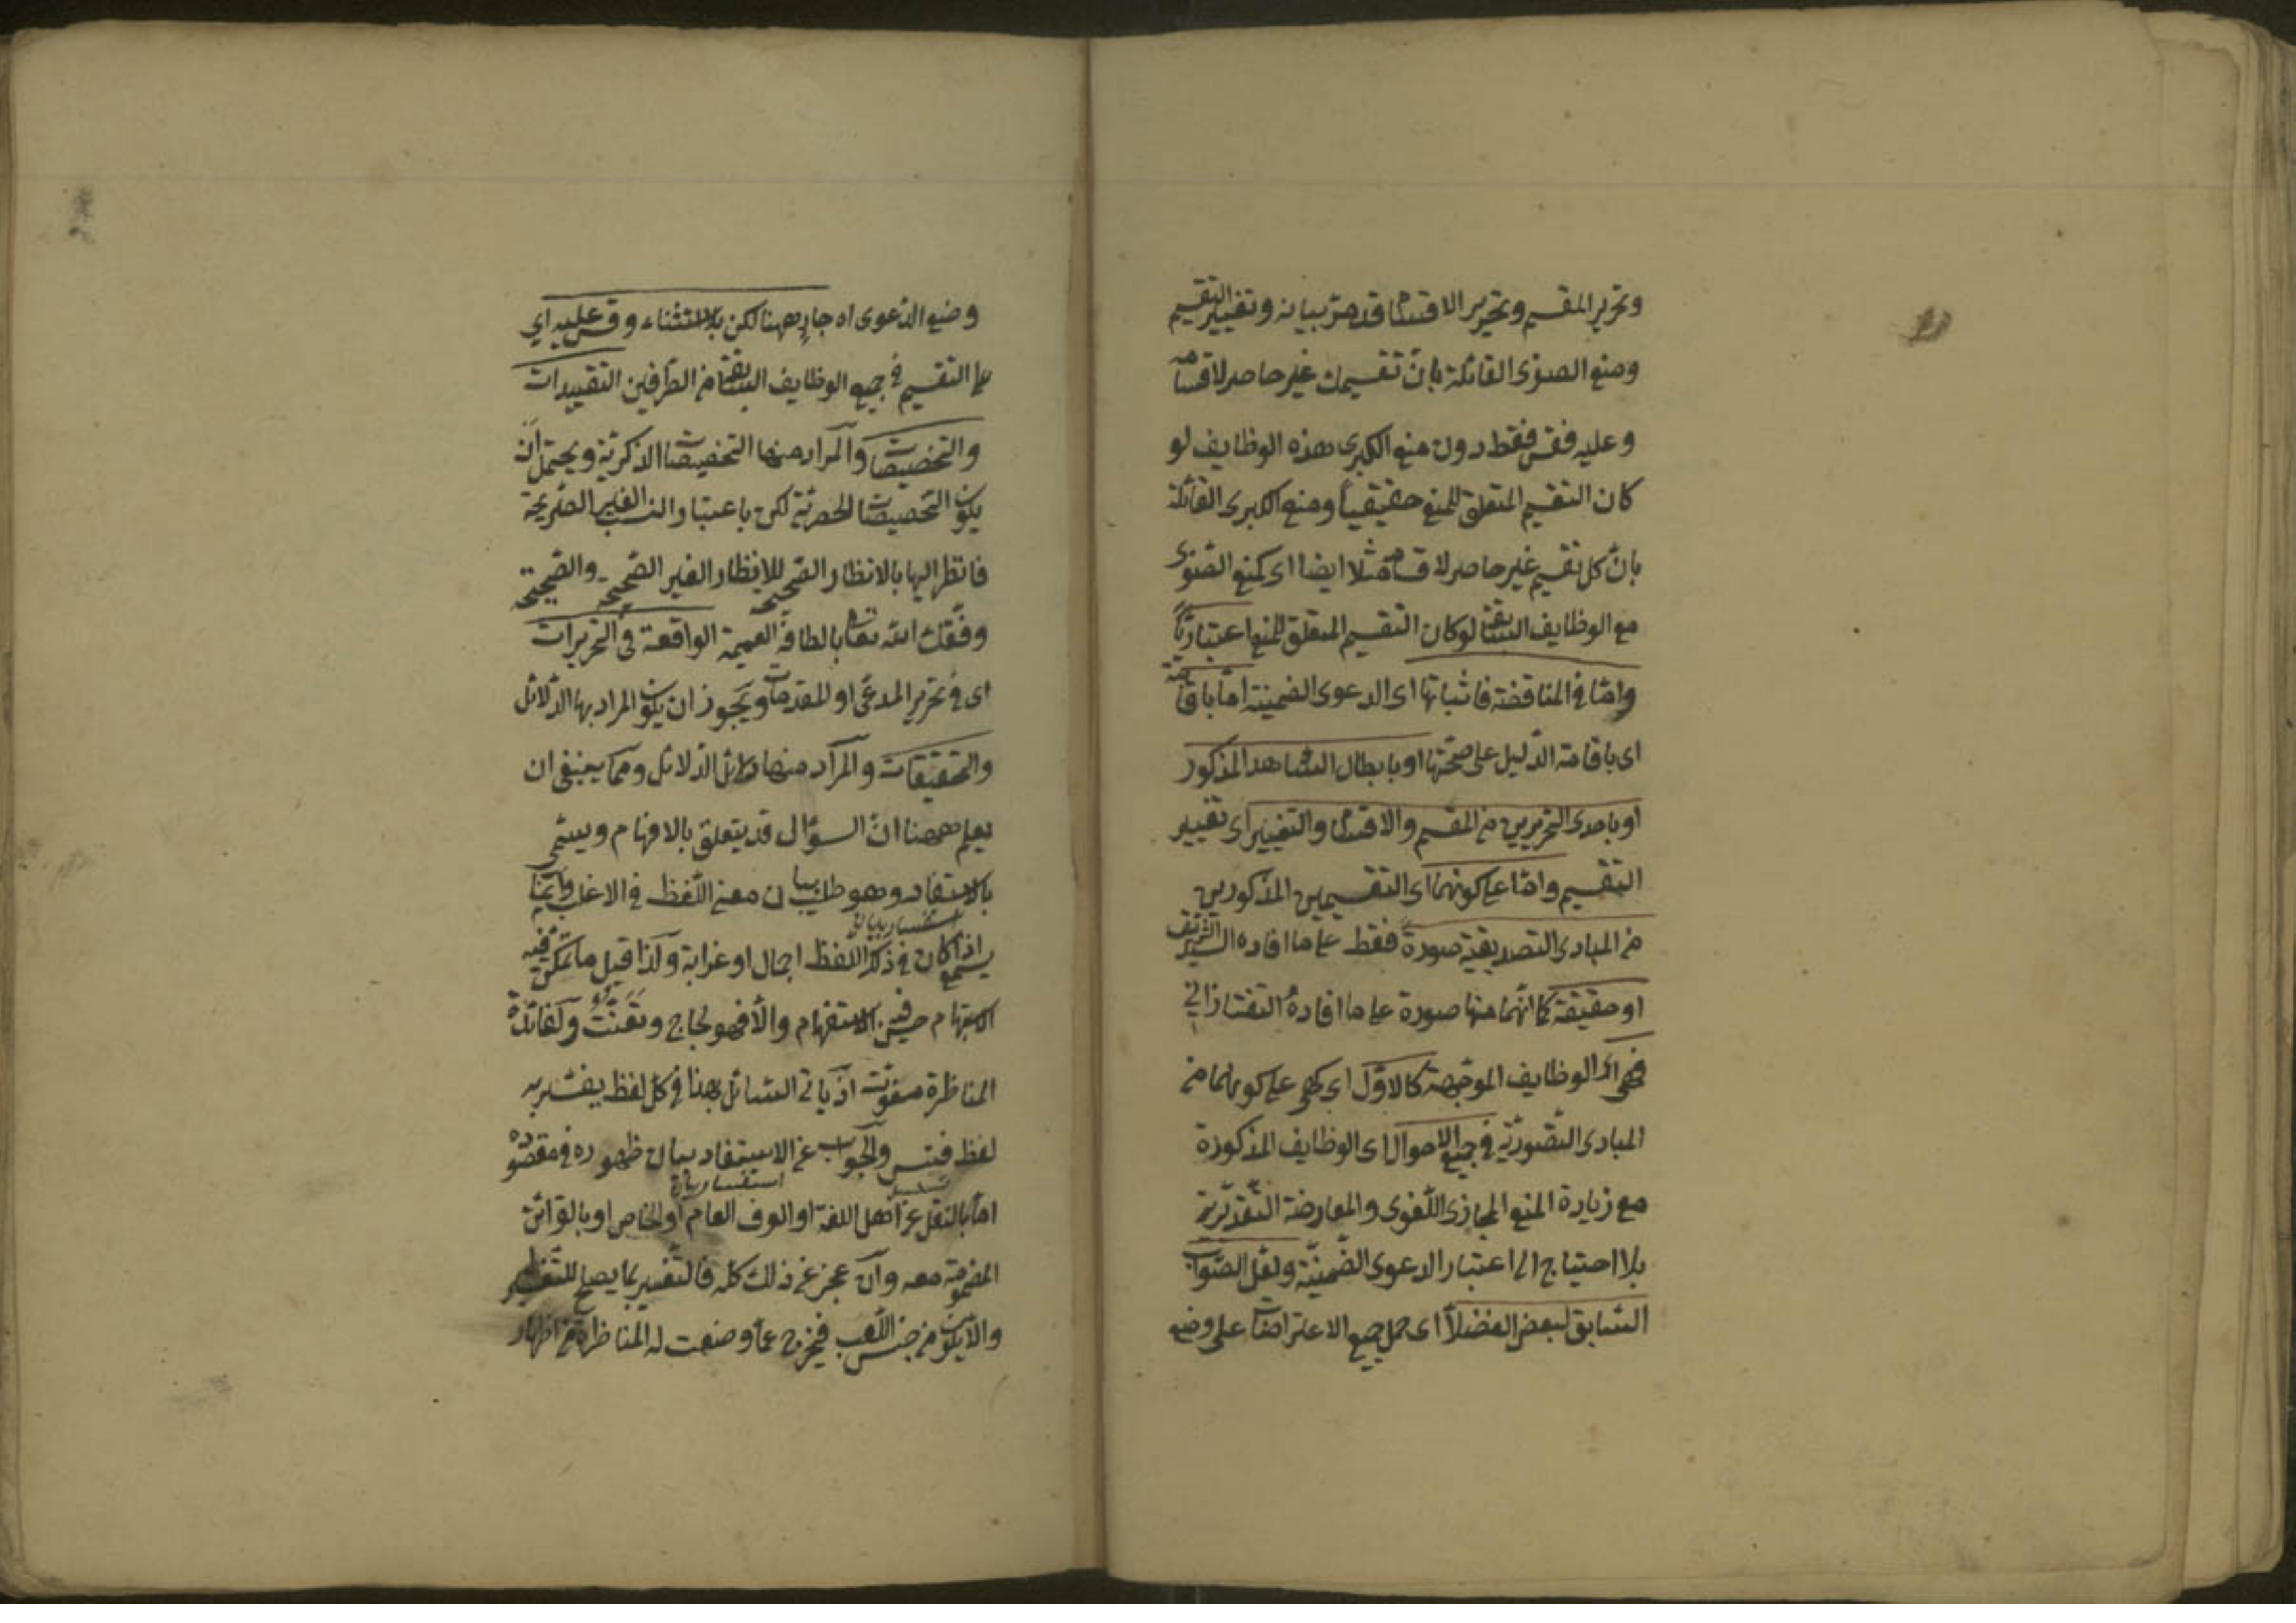 وتحرير المقسم وتحرير الاقسام قد مر بيانه وتغيير التقسيم
ومنع الصغرى القائلة بان تقسيمك غير حاصر لاقسامه
وعليه فقس فقط دون منع الكبرى هذه الوظايف لو
كان التقسيم المتعلق للمنع حقيقياً ومنع الكبرى القائلة
بان كل تقسيم غير حاصر لاقسامه مثلا ايضا اى كمنع الصغرى
مع الوظايف السابقة لو كان التقسيم المتعلق للمنع اعتباريّاً
وامّا فى المناقضة فاثباتها اى الدعوى الضمنية امّا باقامته
اى باقامة الدّليل على صحّتها او بابطال الشاهد المذكور
او باحدى التحريرين من المقسم والاقسام والتغيير اى تغيير
التقسيم وامّا على كونهما اى التقسيمين المذكورين
من المبادى التصديقية صورةً فقط على ما افاده السيّد الشريف
او حقيقة كما انّهما منها صورة على ما افادهُ التفتازانى
فهى اى الوظايف الموجّهة كالاوّل اى كهى على كونهما من
المبادى التصوريّة فى جميع الاحوال اى الوظايف المذكورة
مع زيادة المنع المجازى اللّغوى والمعارضة التقديريّة
بلا احتياج الى اعتبار الدعوى الضّمنيّة ولعلّ الصّواب
السّابق لبعض الفضلاً اى حمل جميع الاعتراضات على وضع
وضع الدّعوى اه جارٍ ههنا لكن بلا استثناء وقس عليه اى
على التقسيم فى جميع الوظايف السابقة من الطّرفين التقييدات
والتخصيصات والمراد منها التخصيصات الذكريّة ويحتمل انّ
يكون التخصيصات الحصريّة لكن باعتبار النسب الغير الصّريحة
فانظر اليها بالانظار الصّحيحة للانظار الغير الصّحيحة والصّحيحة
وفّقك اللّه تعالى بالطافه العميمة الواقعة فى التحريرات
اى فى تحرير المدعى او المقدمات ويجوز ان يكون المراد بها الدّلائل
والتحقيقات والمراد منها دلائل الدّلائل وممّا ينبغى ان
يعلم ههنا انّ السؤال قد يتعلق بالافهام ويسمّى
بالاستفاد وهو طلب بيان معنى اللّفظ فى الاغلب وانّما
استفسار بيان
يسمع اذا كان فى ذلك اللّفظ اجمال او غرابة ولذا قيل ما تمكّن فيه
الاستبهام حسن فيه الاستفهام والّا فهو لجاج وتعنّت ولفائدة
المناظرة مفوّت اذ يأتى السّائل بهذا فى كل لفظ يفسّر به
لفظ فتس والجواب عن الاستفاد ببيان ظهوره فى مقصوده
استفسار بيان
امّا بالنقل عن اهل اللغة او العرف العام او الخاص او بالقرائن
المضمومة معه وان عجز عن ذلك كلّه فالتّفسير بما يصلح للتّفسير
والّا يكون من جنس اللّعب فيخرج عمّا وضعت له المناظرة من اظهار